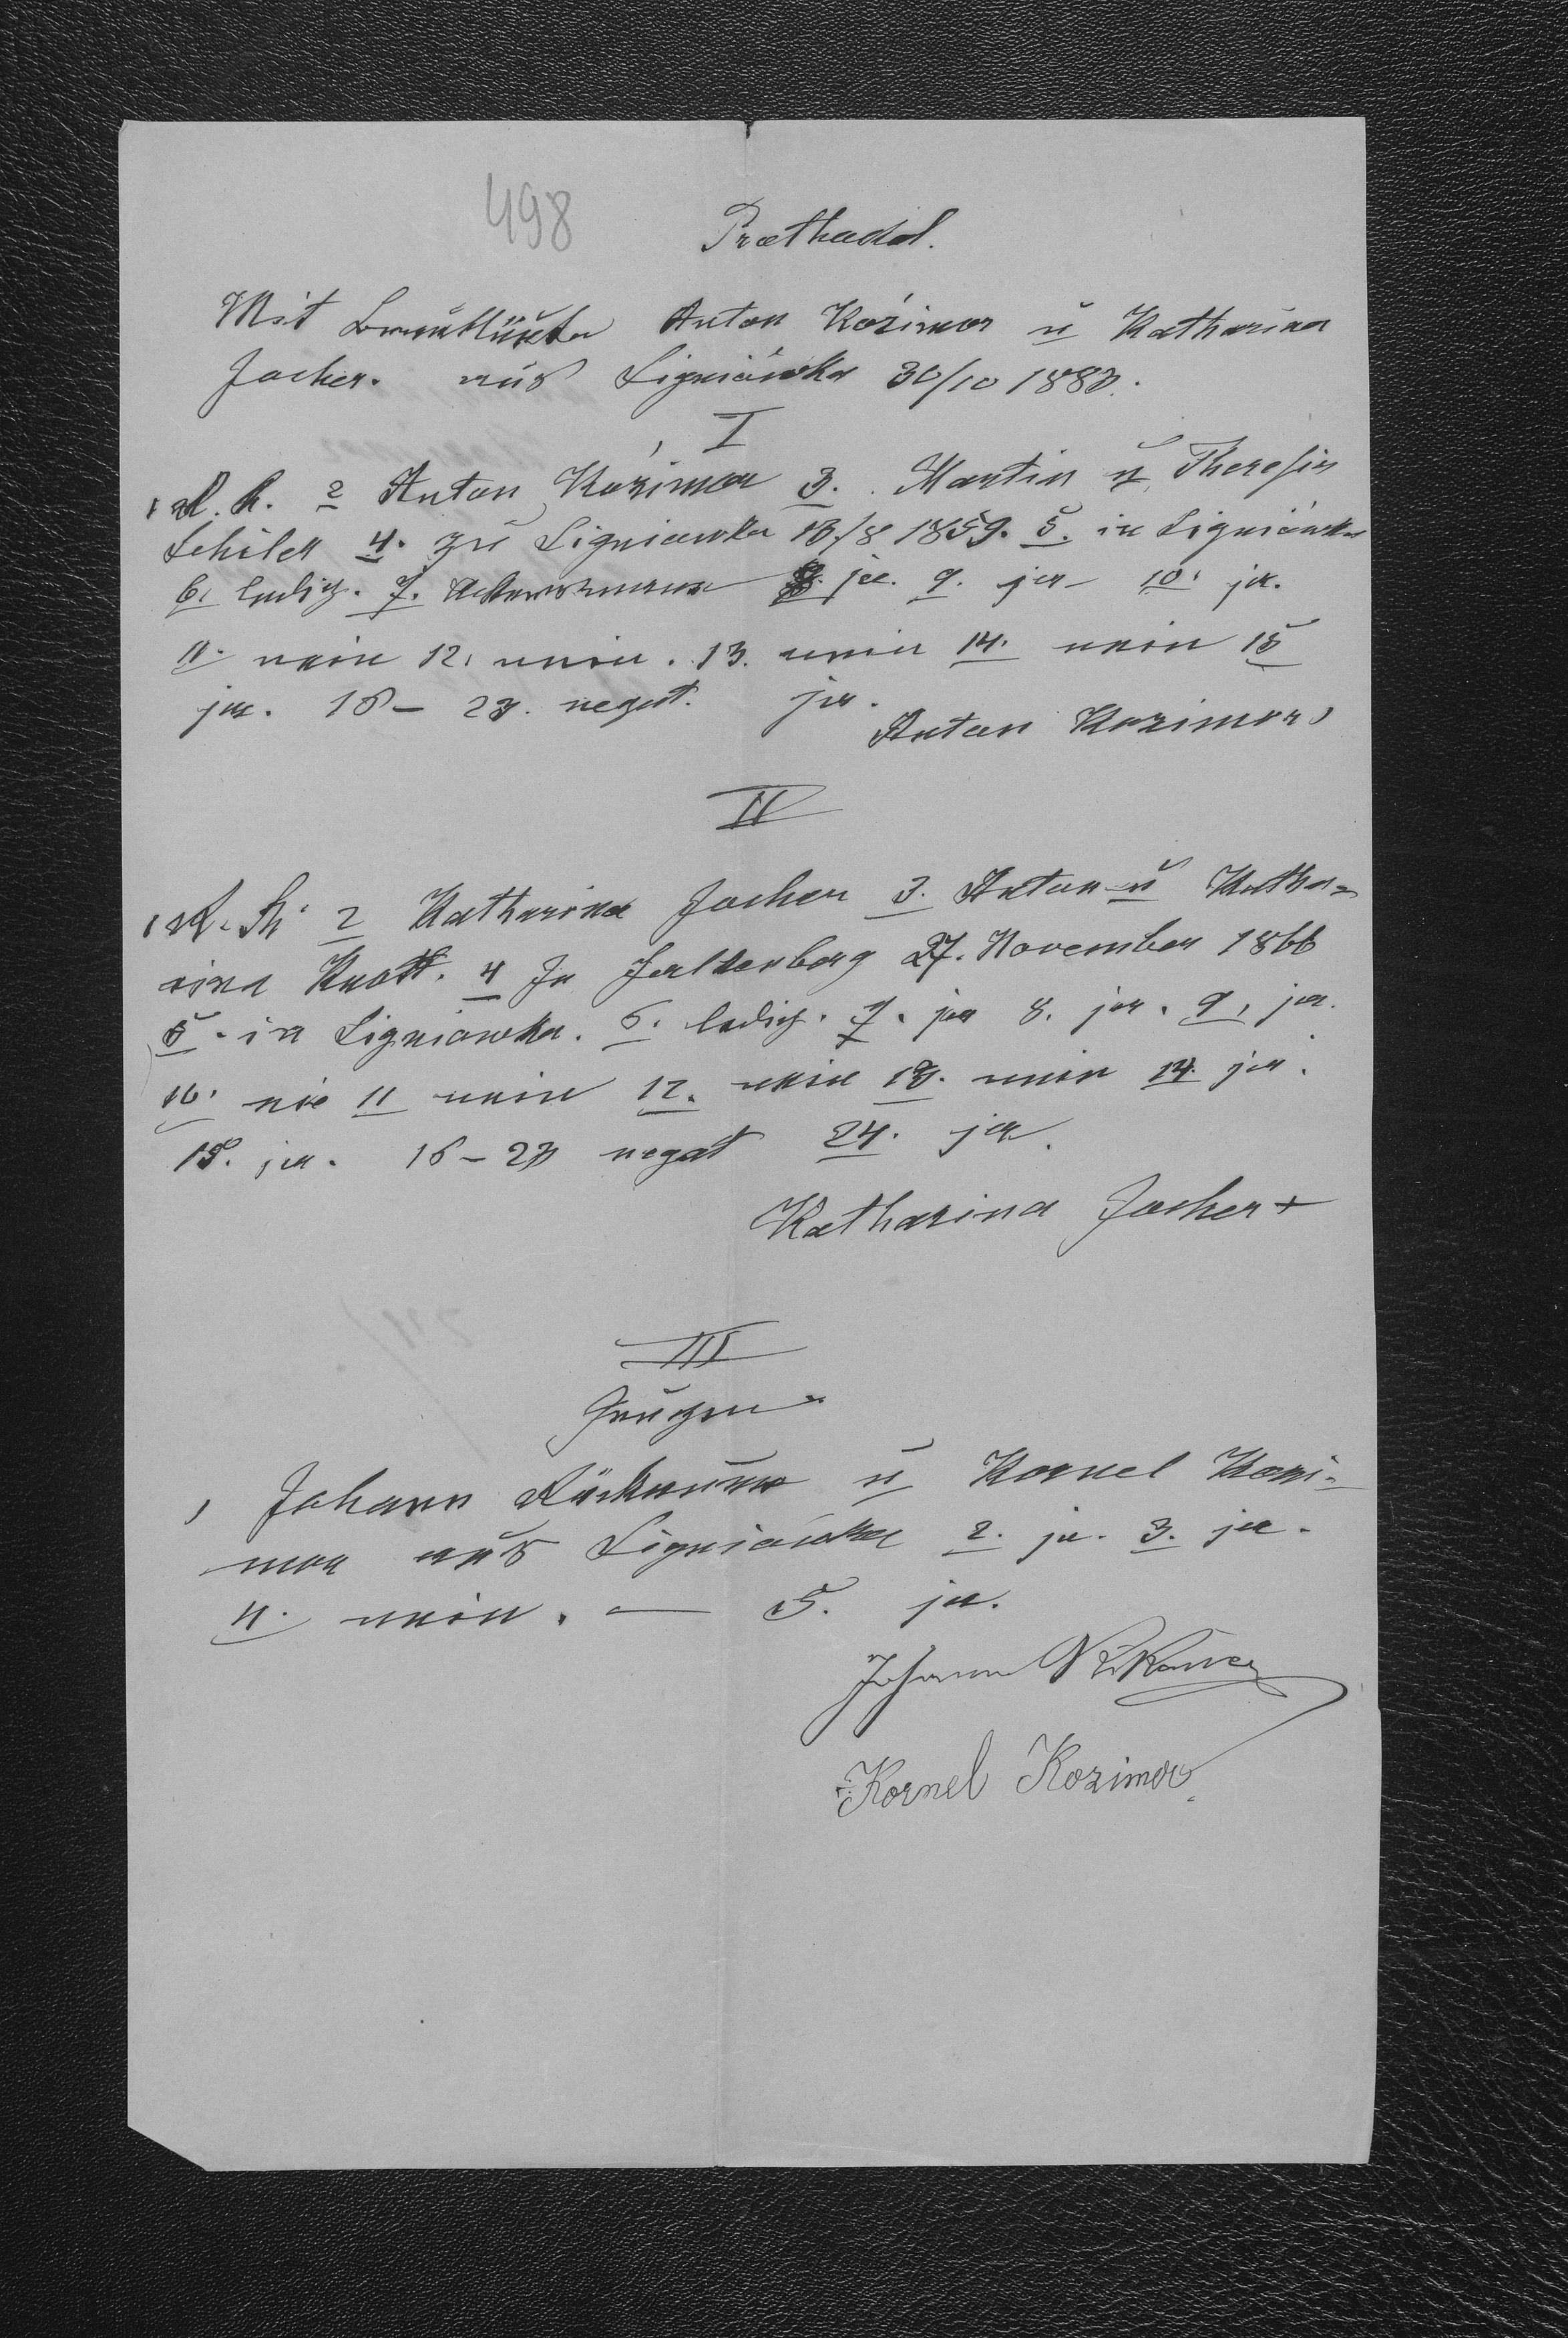 498
Prothocol.
Mit Brautleute Anton Kozimor u Katharina
Jocher. aus Ligniówka 30/10 1883.
I
1 R. k. 2 Anton Kozimor 3. Martin u. Theresia
Schiler 4. zu Ligniowka 13/8 1859. 5. in Ligniówka
6. ledig. 7. Ackersmann 8. ja. 9. ja 10. ja.
11. nein 12. nein. 13. nein 14. nein 15
ja. 16 – 23. negat. ja.
Anton Kozimor
II
1 R. k. 2 Katharina Jocher 3. Anton u Katha=
rina 4 In Falkenberg 27. November 1866
5. in Ligniowka. 6. ledig. 7. ja 8. ja. 9. ja.
10. nie 11 nein 12. nein 13. nein 14. ja.
15. ja. 16 – 23 negat 24. ja.
Katharina Jocher +
III
Zeugen
1 Johann u Kornel Kozi=
mor aus Ligniówka 2. ja. 3. ja.
4. nein. — 5. ja.
Johann
Kornel Kozimor